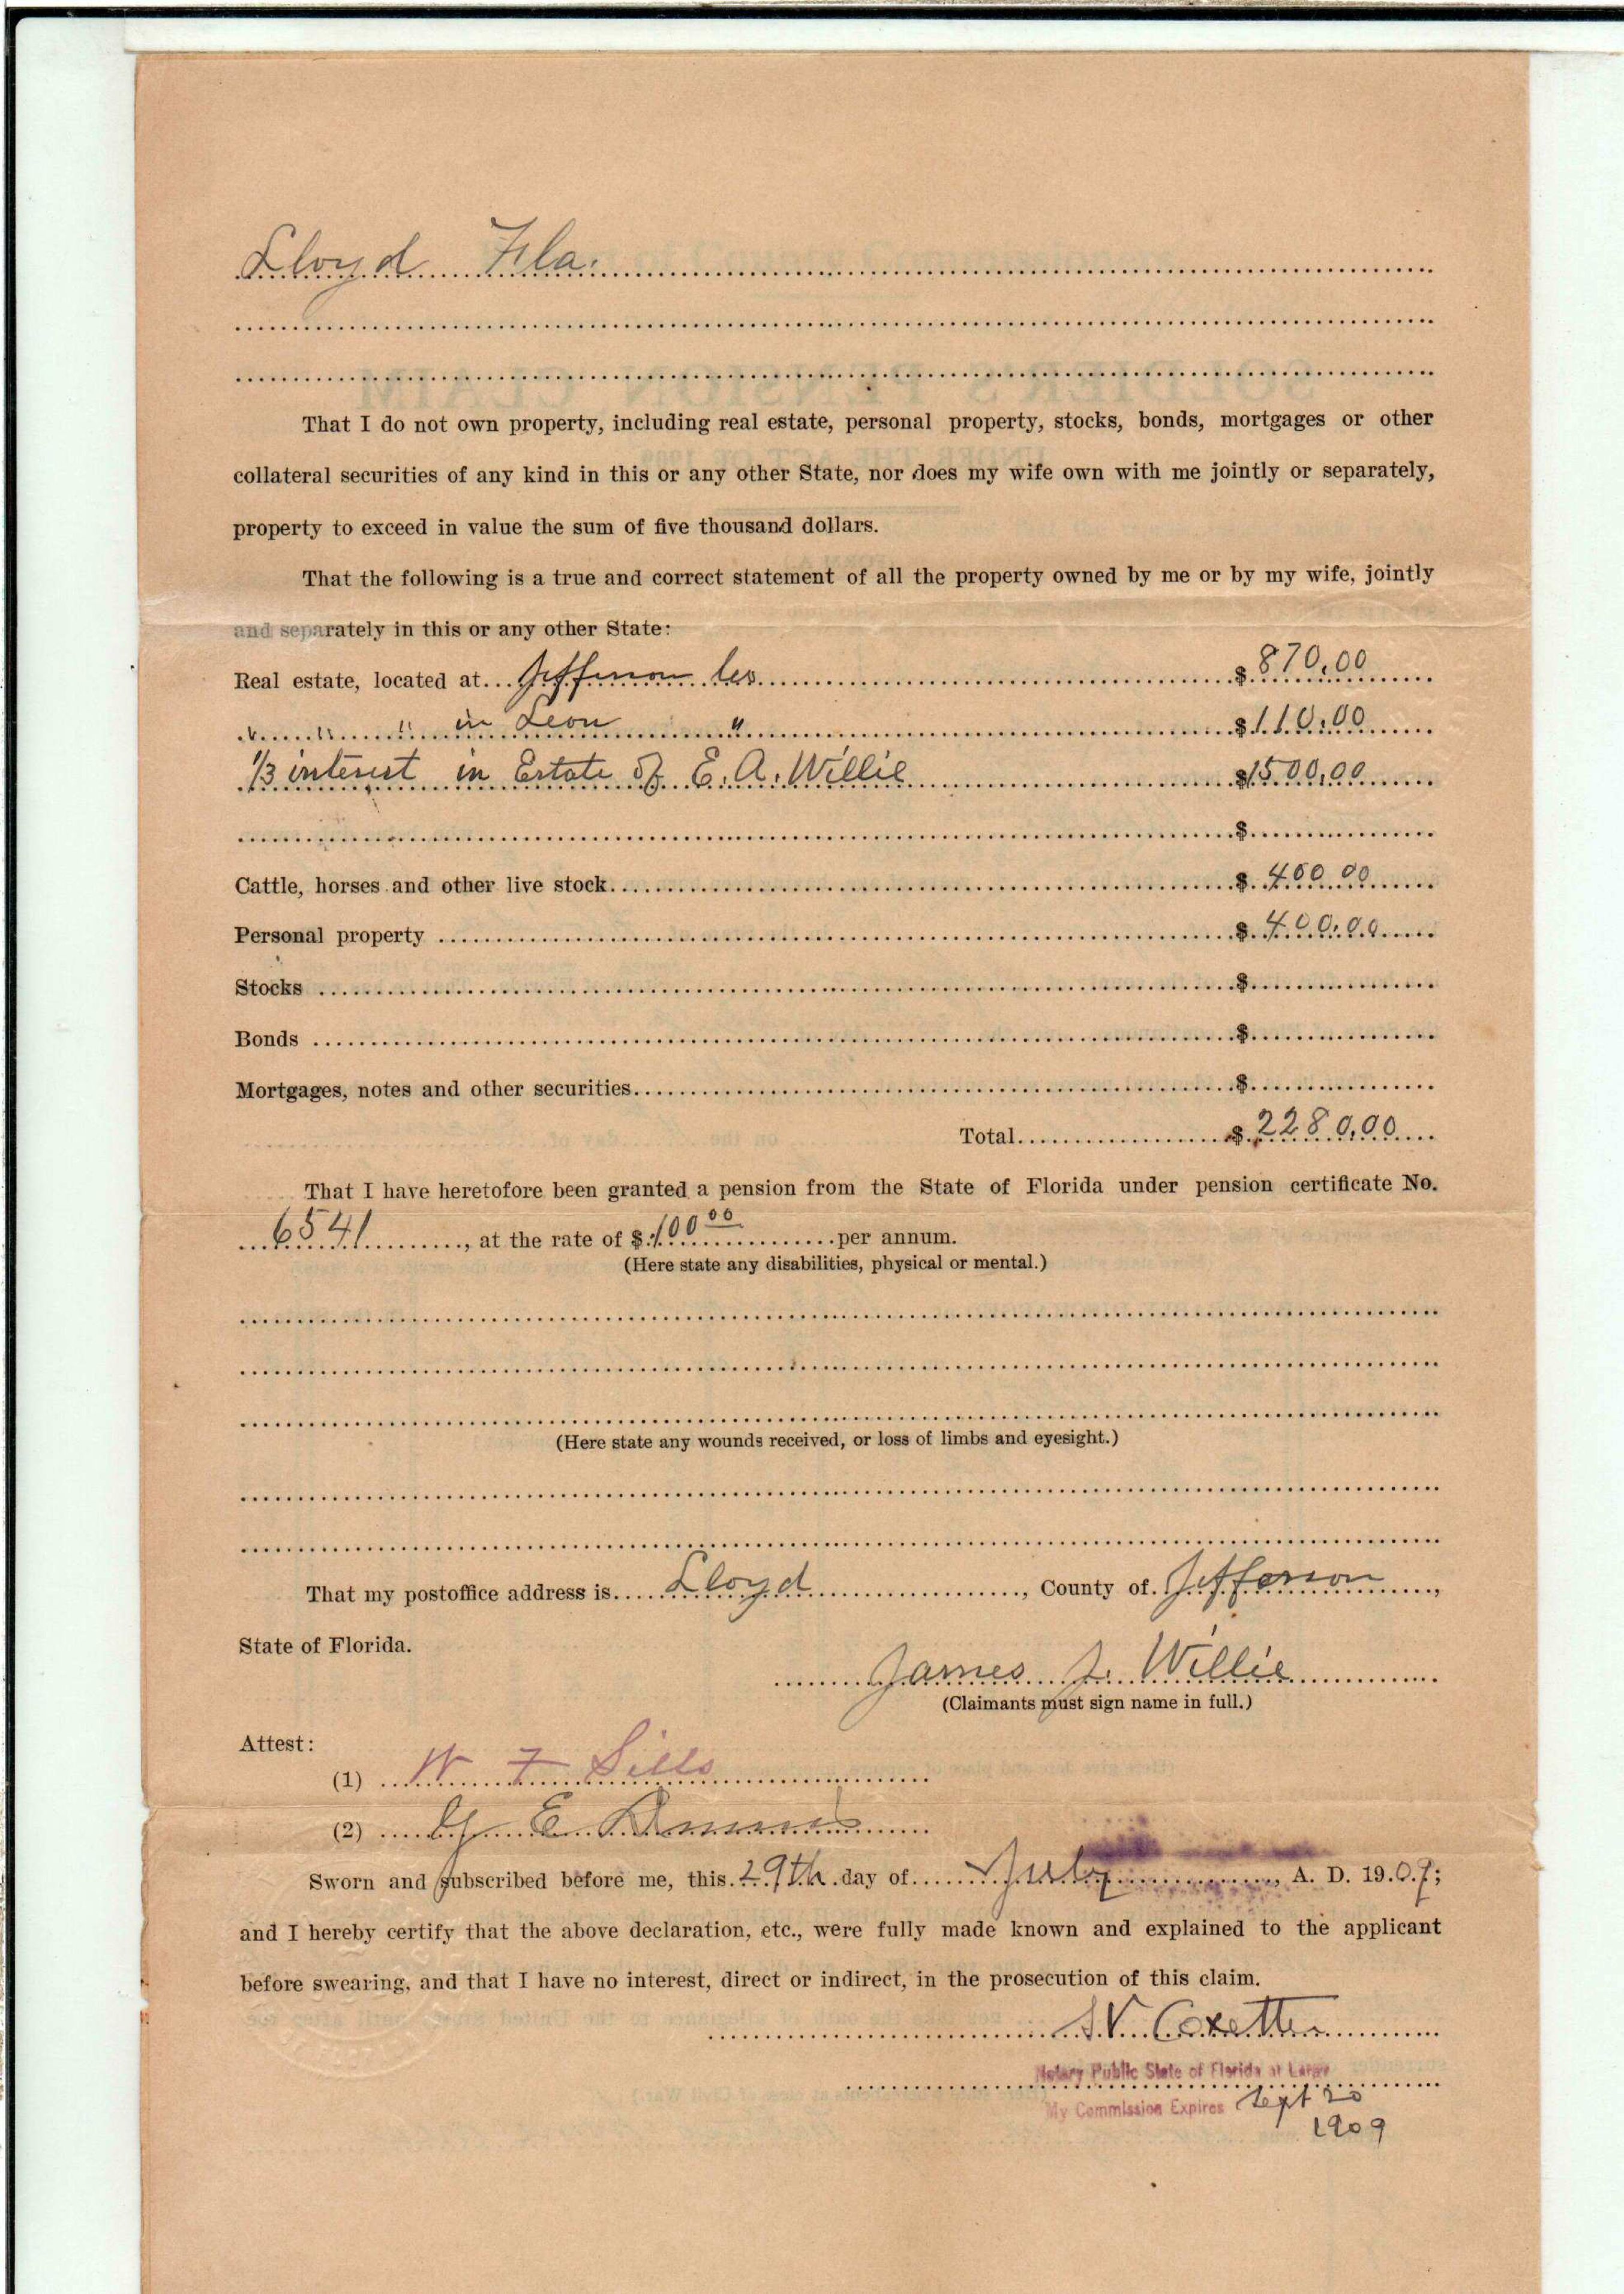 Lloyd Fla.
That I do not own property, including real estate, personal property, stocks, bonds, mortgages or other
collateral securities of any kind in this or any other State, nor does my wife own with me jointly or separately,
property to exceed in value the sum of five thousand dollars.
That the following is a true and correct statement of all the property owned by me or by my wife, jointly
and separately in this or any other State:
Real estate, located at Jefferson Co $870.00
" " " in Leon " $110.00
1/3 interest in Estate of E. A. Willie $1500.00
$
Cattle, horses and other live stock $ 400 00
Personal property $ 400.00
Stocks $
Bonds $
Mortgages, notes and other securities $
Total $ 2280.00
That I have heretofore been granted a pension from the State of Florida under pension certificate No.
6541, at the rate of $ 100 00 per annum.
(Here state any disabilities, physical or mental.)
(Here state any wounds received, or loss of limbs and eyesight.)
That my postoffice address is Lloyd, County of Jefferson,
State of Florida.
James J. Willie
(Claimants must sign name in full.)
Attest:
(1) W F Sills
(2) E
Sworn and subscribed before me, this 29th day of July, A. D. 1907;
and I hereby certify that the above declaration, etc., were fully made known and explained to the applicant
before swearing, and that I have no interest, direct or indirect, in the prosecution of this claim.
S.V. Coxetter
Notary Public State of Florida at Large
My Commission Expires Sept 20
1909